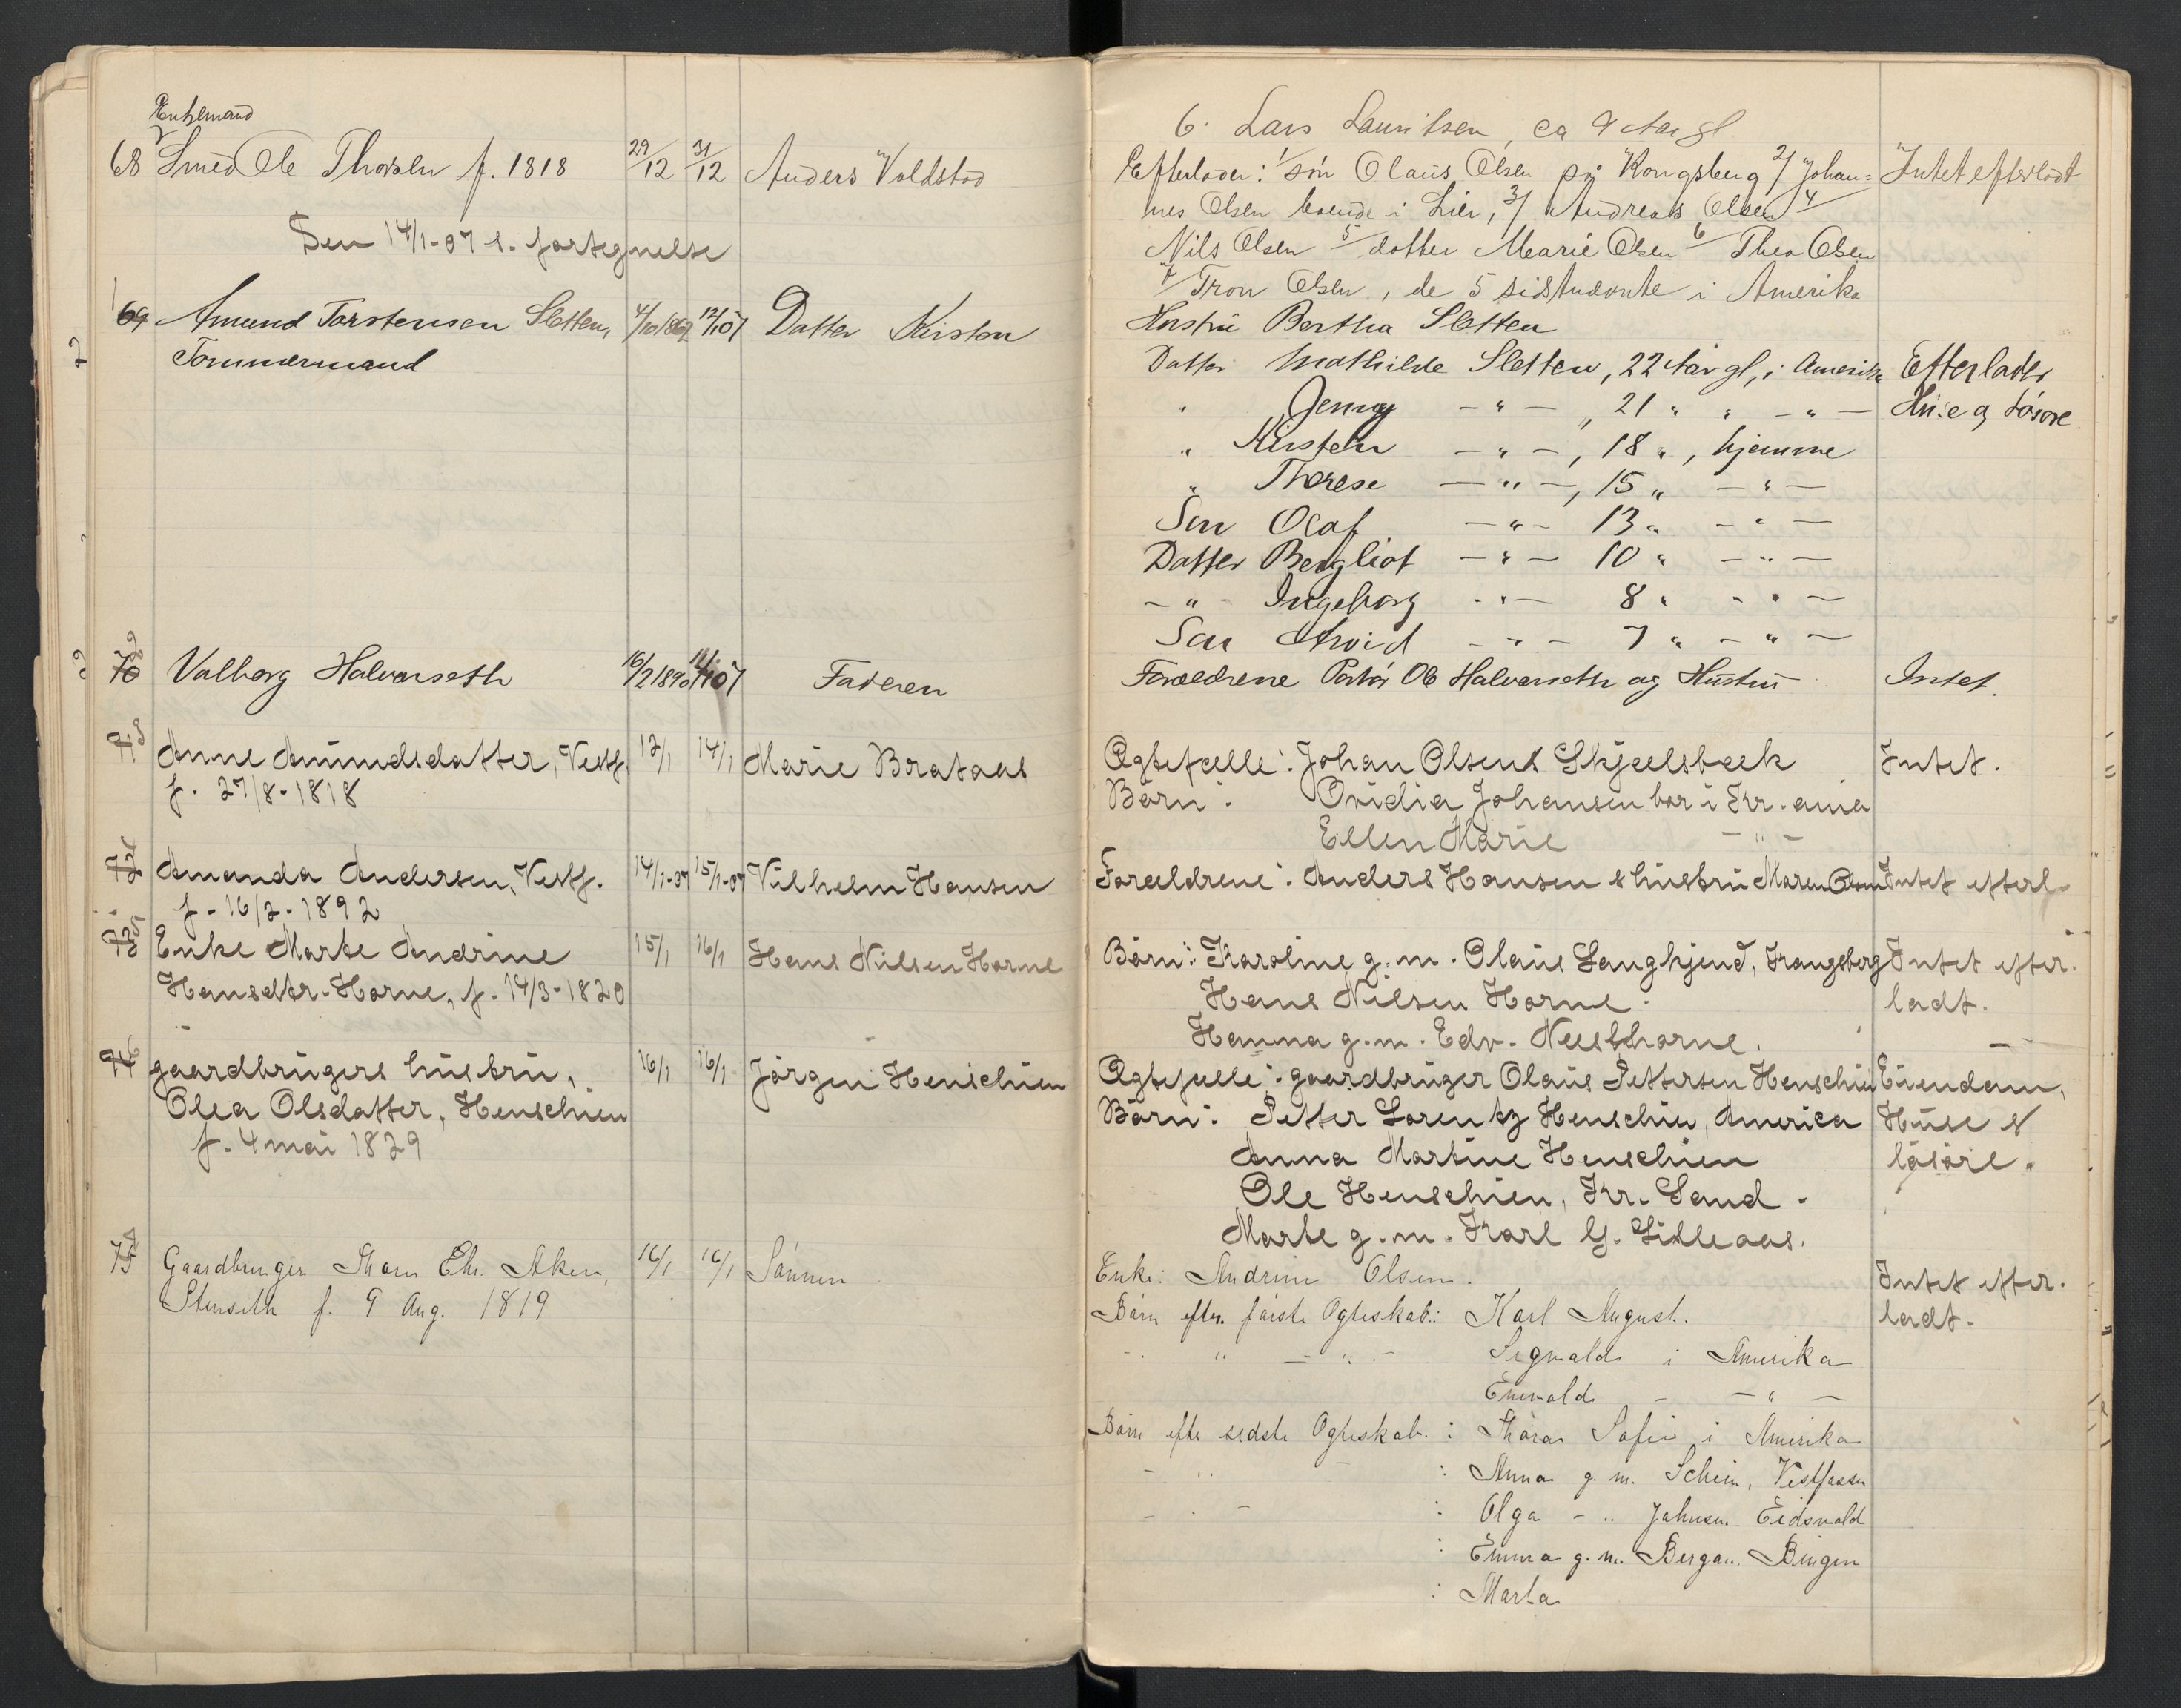 Enkemand
68 Smed Ole Thorsen f. 1818 29/12 31/12 Anders Voldstad
Sen 14/1-07 s. fortegnelse
69 Amund Torstensen Sletten, 4/10 1862 12/1 07 Datter Kirsten
Tømmermand
70 Valborg Halvorseth 16/2 1890 14/1 07 Faderen
71 Anne Amundsdatter, Vestf. 12/1 14/1 Marie Brataas
f. 27/8-1818
72 Amanda Andersen, Vestf. 14/1-07 15/1-07 Vilhelm Hansen
f. 16/2-1892
73 Enke Marte Andrine 15/1 16/1 Hans Nilsen Horne
Hansdtr. Horne, f. 14/3-1820
74 gaardbrugers hustru, 16/1 16/1 Jørgen Henschien
Olea Olsdatter, Henschien
f. 4 mai 1829
75 Gaardbruger Thom Chr. Aken, 16/1 16/1 Sønnen
Stenseth f. 9 Aug. 1819
6. Lars Lauritsen, ca 9 Aar gl.
Efterlader: 1/ søn Olaus Olsen på Kongsberg 2/ Johan= Intet efterladt
nes Olsen boende i Lier, 3/ Andreas Olsen 4/
Nils Olsen 5/ dotter Marie Olsen 6/ Thea Olsen
7/ Tron Olsen, de 5 sidstnævnte i Amerika
Hustru Bertha Sletten
Datter Mathilde Sletten, 22 Aar gl, i Amerika Efterlader
" Jenny - " - , 21 " " - " - Huse og Løsøre
" Kirsten - " - , 18 " , hjemme
" Therese - " - , 15 " - " -
Søn Olaf - " - 13 " - " -
Datter Bergliot - " - 10 " - " -
- " - Ingeborg - " - 8 " - " -
Søn Arvid - " - 7 " - " -
Forældrene Portør Ole Halvorseth og Hustru Intet.
Ægtefælle: Johan Olsens Skjælsbæk Intet.
Børn: Ovidia Johansen bor i Kr.ania
Ellen Marie - " -
Forældrene: Anders Hansen & hustru Maren Olsen Intet efterl.
Børn: Karoline g.m. Olaus Langkjend, Krangsberg Intet efter.
Hans Nilsen Horne. ladt.
Hanna g.m. Edv. Neesthorne.
Ægtefælle: gaardbruger Olaus Pettersen Henschien Eiendom,
Børn: Petter Lorentz Henschien, America Huse &
Anna Martine Henschien løsøre.
Ole Henschien, Kr. Sand.
Marte g.m. Karl G. Lilleaas.
Enke: Andrine Olsen. Intet efter.
Børn efter første Ægteskab: Karl August. ladt.
- " - " - Sigvald i Amerika
Envald - - " -
Børn efter sidste Ægteskab: Thora Sofie i Amerika
- " - : Anna g. m. Schein, Vestfossen
- " - : Olga - " Johnsen Eidsvold
: Emma g. m. Bergan Bingen
: Marta